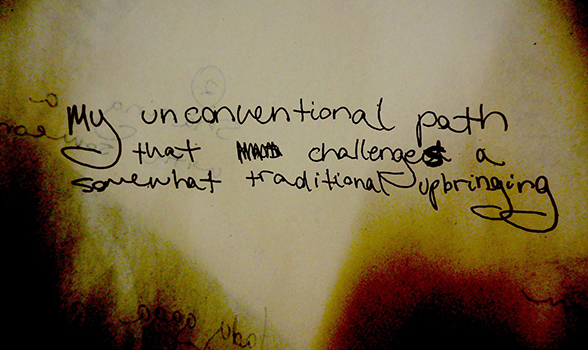 My unconventional path
that challenges a
somewhat traditional upbringing